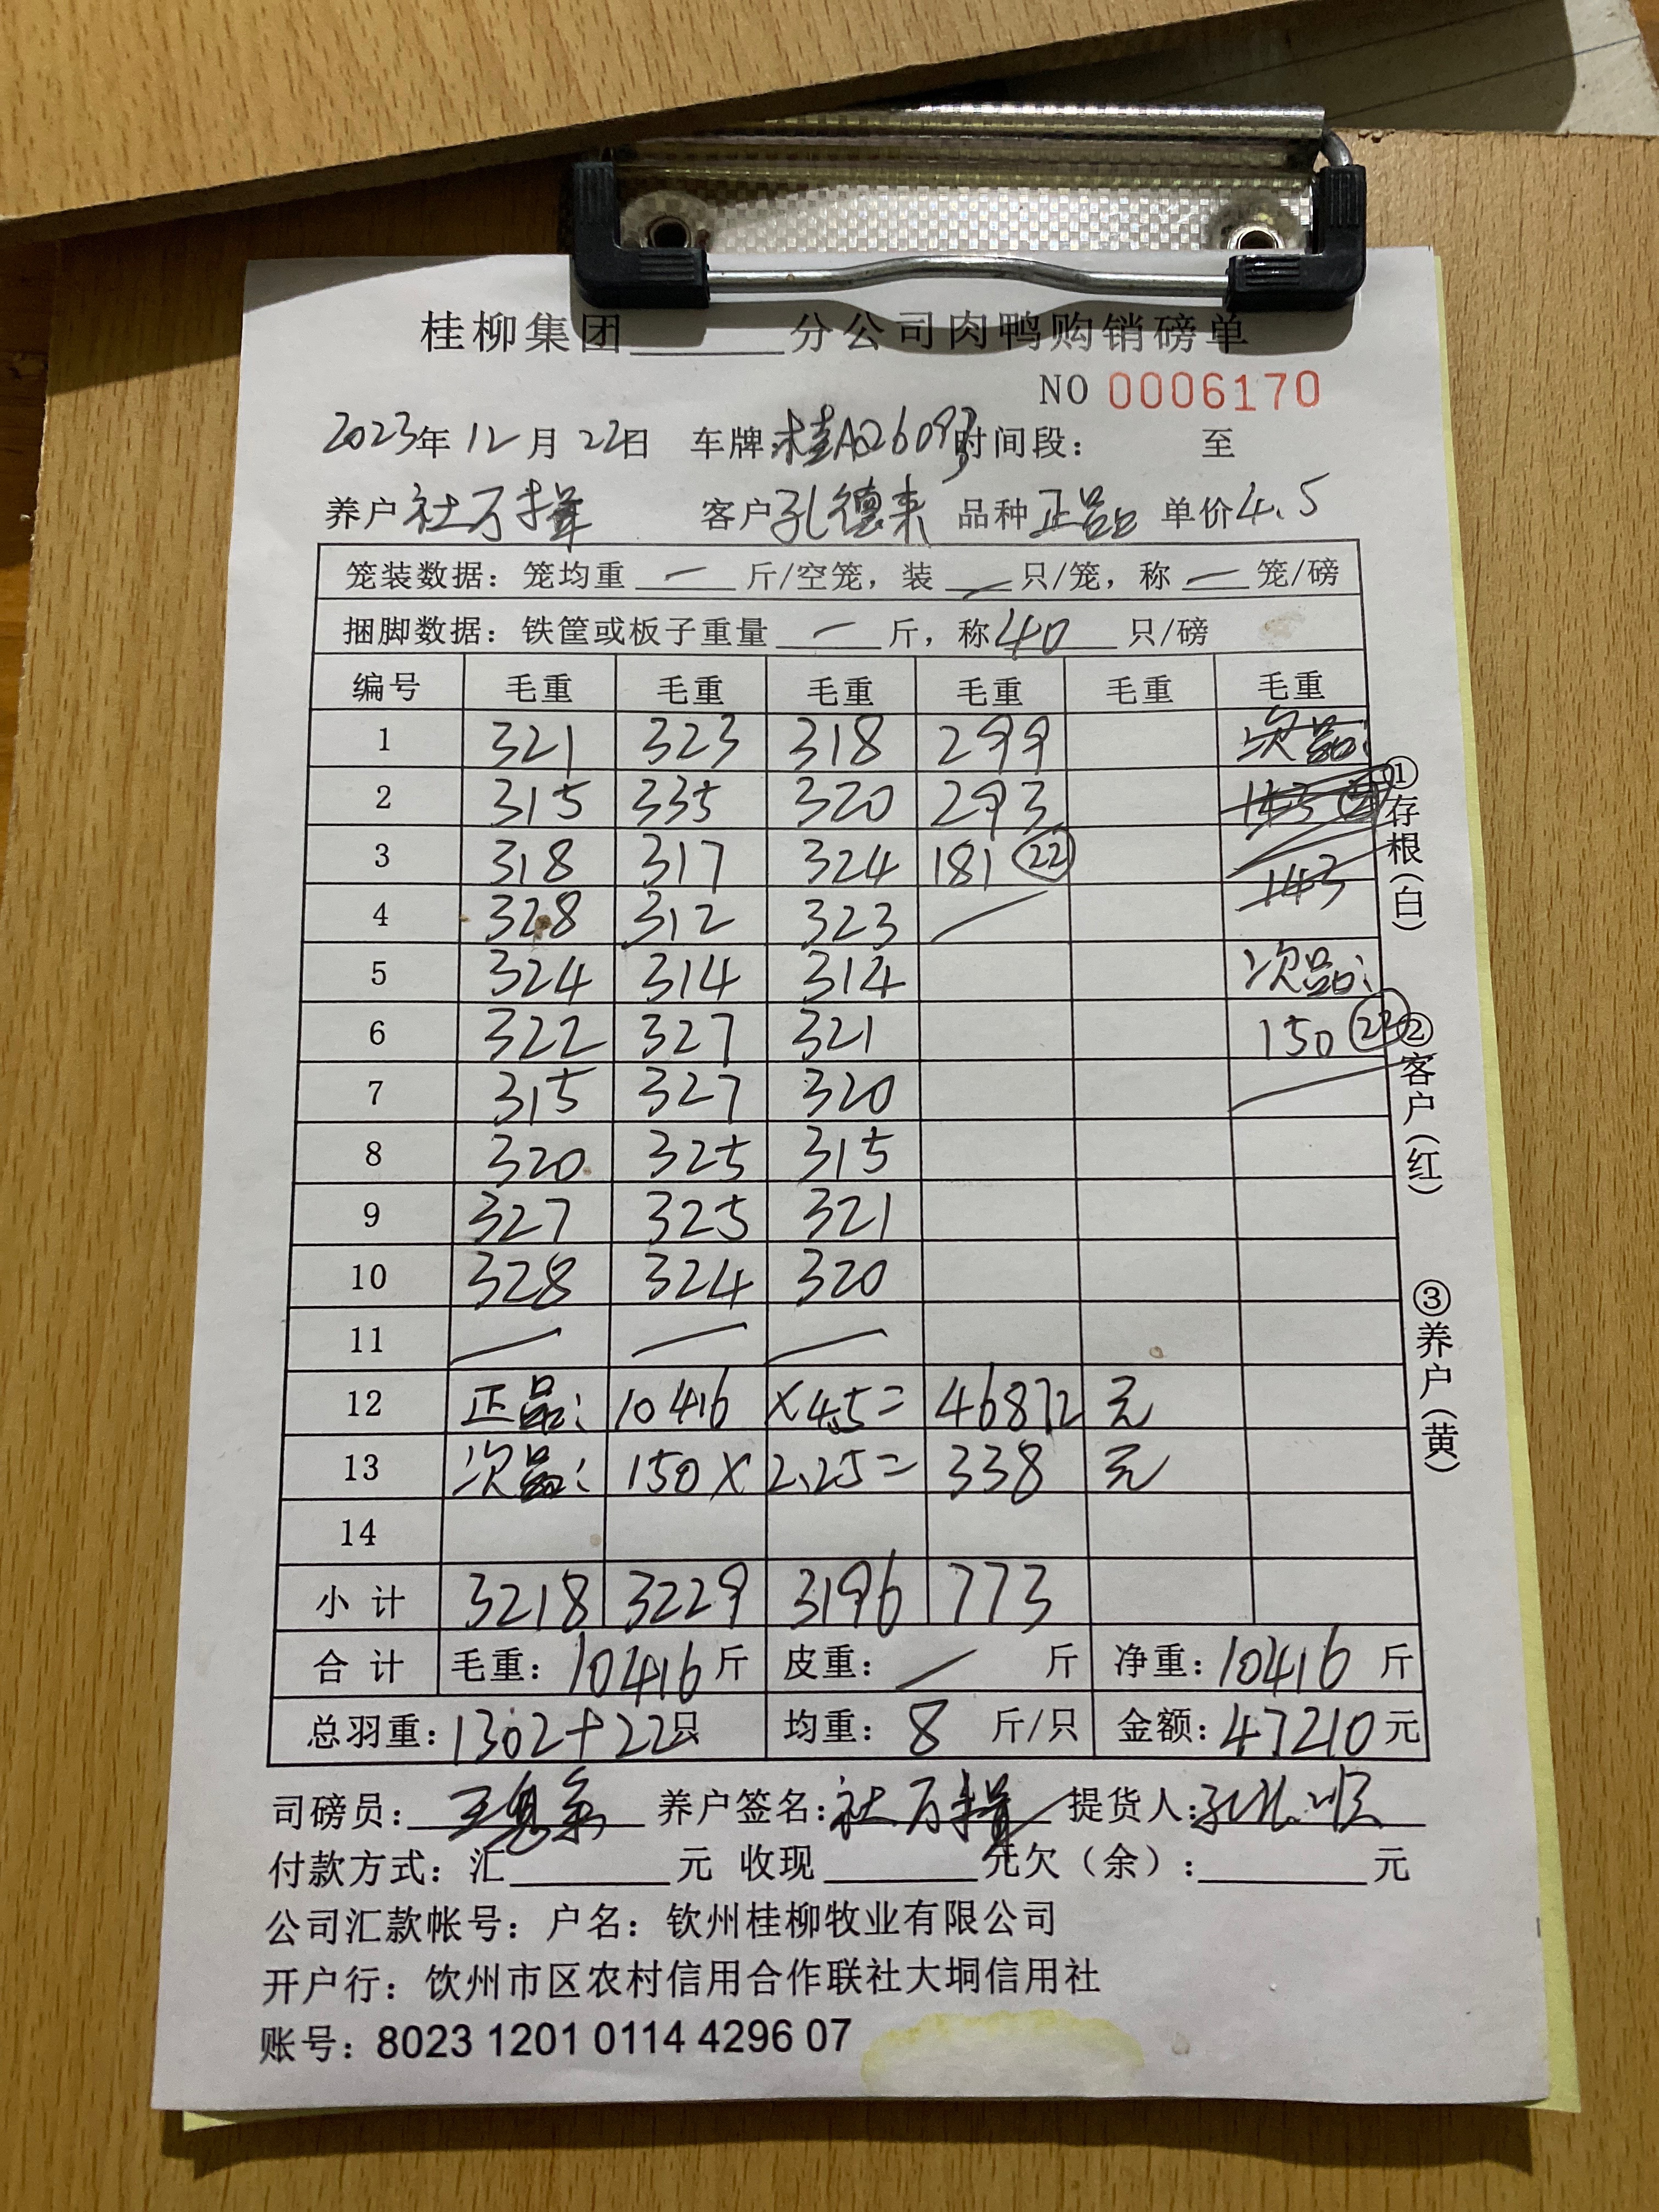 桂柳集团______分公司肉鸭购销磅单
NO 0006170
2023年12月22日 车牌:桂A02609 时间段: 至
养户 社万 客户 孔德来 品种 正品 单价 4.5
笼装数据: 笼均重 — 斤/空笼, 装 — 只/笼, 称 — 笼/磅
捆脚数据: 铁筐或板子重量 — 斤, 称 40 只/磅
编号 毛重 毛重 毛重 毛重 毛重 毛重
1 321 323 318 299 次品:
2 315 335 320 293 143
3 318 317 324 181 (22)
143
4 328 312 323 —
5 324 314 314 次品:
6 322 327 321 150 (22)
7 315 327 320 —
8 320 325 315
9 327 325 321
10 328 324 320
11 — — —
12 正品: 10416 ×4.5= 46872 元
13 次品: 150× 2.25= 338 元
14
小计 3218 3229 3196 773
合计 毛重: 10416 斤 皮重: — 斤 净重: 10416 斤
总羽重: 1302+22只 均重: 8 斤/只 金额: 47210元
司磅员: 养户签名: 社万 提货人:
付款方式: 汇______元 收现______元欠(余):______元
公司汇款帐号: 户名: 钦州桂柳牧业有限公司
开户行: 钦州市区农村信用合作联社大垌信用社
账号: 8023 1201 0114 4296 07
①存根(白)
②客户(红)
③养户(黄)